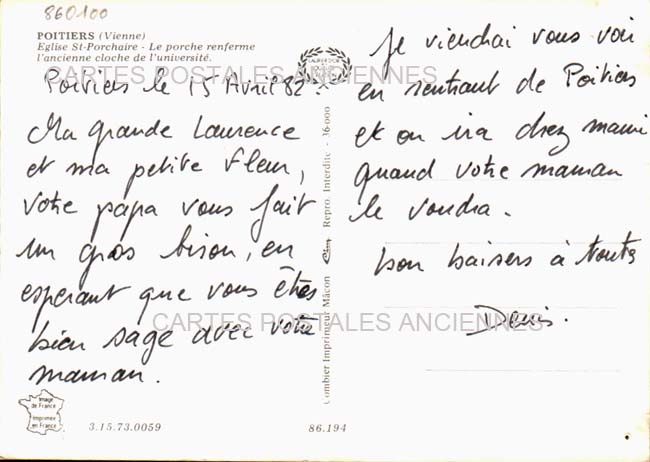 860100
POITIERS (Vienne)
Eglise St-Porchaire - Le porche renferme
l'ancienne cloche de l'université.
CARTES POSTALES ANCIENNES
Poitiers le 15 Avril 82.
Ma grande Laurence
et ma petite Fleur,
votre papa vous fait
un gros bison, en
esperant que vous êtes
bien sage avec votre
maman.
Je viendrai vous voir
en rentrant de Poitiers
et on ira chez mami
quand votre maman
le voudra.
bon baisers à toutes
Denis.
CARTES POSTALES ANCIENNES
Combier Imprimeur Mâcon
Repro. Interdite - 36-000
Image
de France
Imprimée
en France
3.15.73.0059
86.194